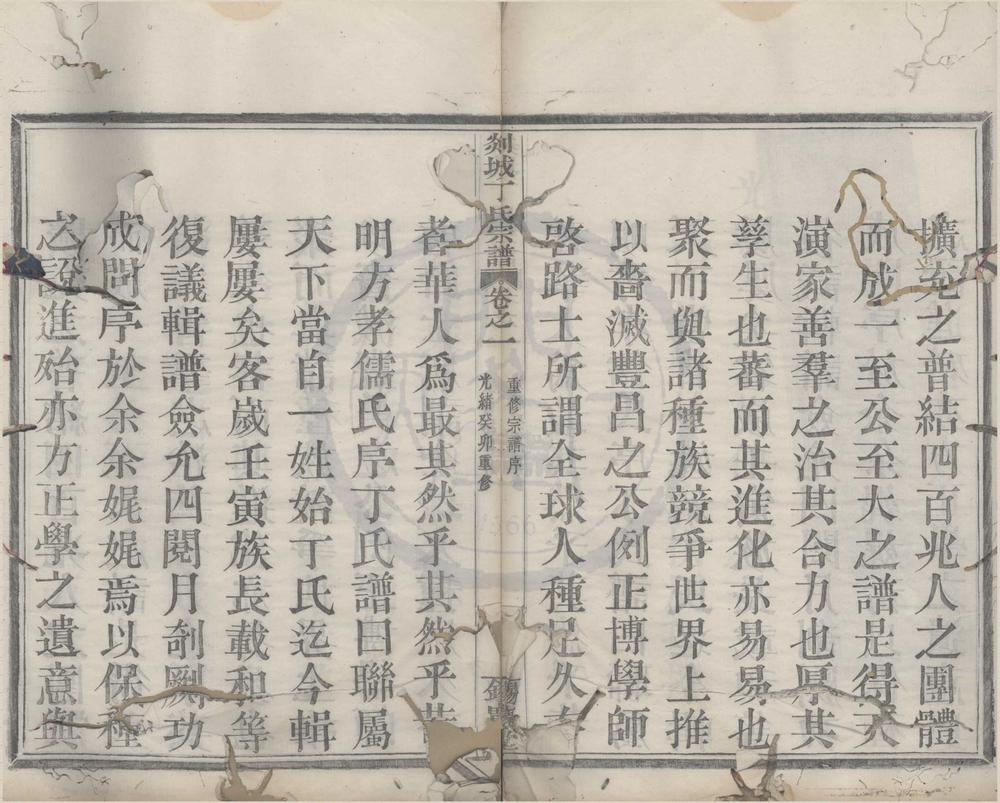 擴充之普結四百兆人之團體
而成一至公至大之譜是得天
演家善羣之治其合力也厚其
孳生也蕃而其進化亦易易也
聚而與諸種族競爭世界上推
以嗇滅豐昌之公例正博學師
啓路士所謂全球人種足久
剡城丁氏宗譜 卷之一
重修宗譜序
光緒癸卯重修
者華人爲最其然乎其然乎
明方孝儒氏序丁氏譜曰聯屬
天下當自一姓始丁氏迄今輯
屢屢矣客歲壬寅族長載和等
復議輯譜僉允四閱月剞劂功
成問序於余余娓娓焉以保種
之說進殆亦方正學之遺意與